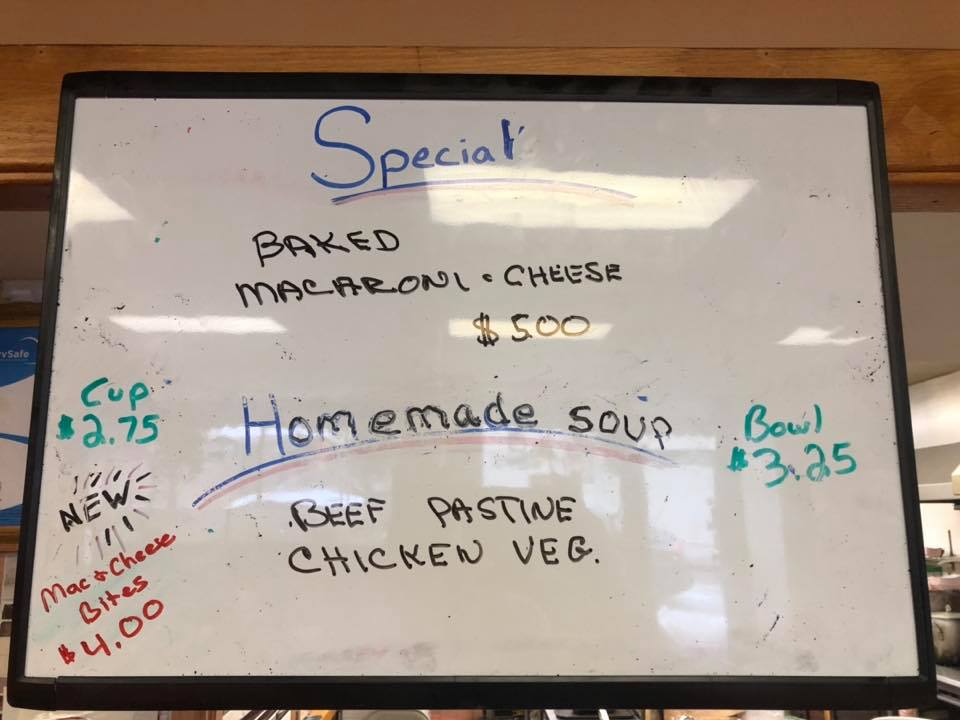 Special
BAKED
MACARONI • CHEESE
$ 5.00
Cup
$2.75
Homemade soup
Bowl
$3.25
BEEF PASTINE
CHICKEN VEG.
NEW
Mac & Cheese
Bites
$4.00
vSafe